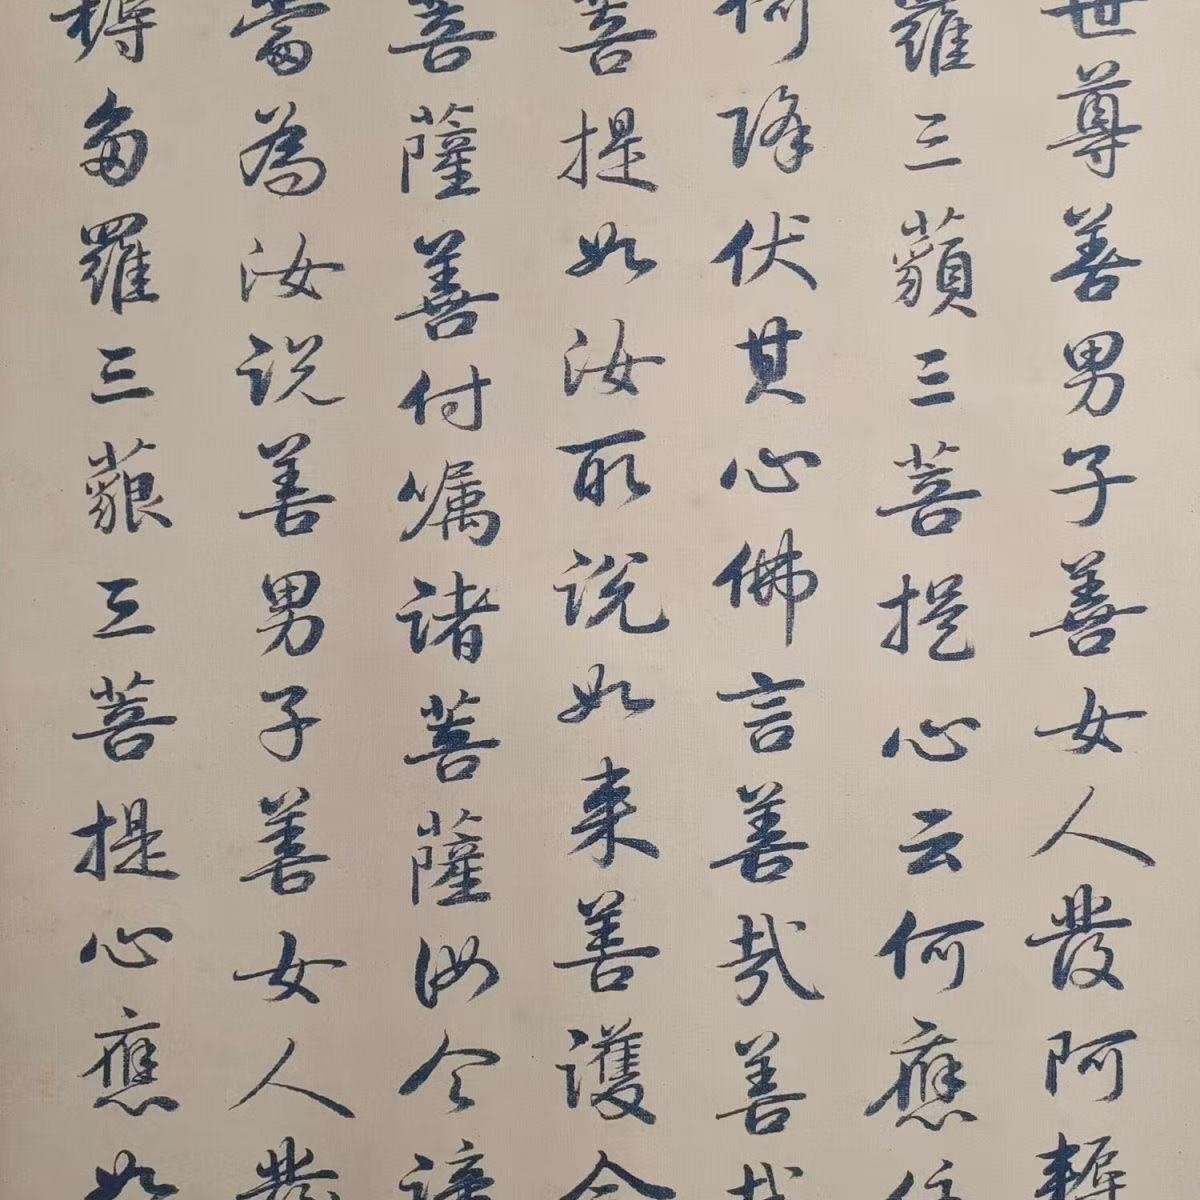 世尊善男子善女人發阿耨
羅三藐三菩提心云何應住
何降伏其心佛言善哉善哉
菩提如汝所說如来善護念
菩薩善付嘱諸菩薩汝今諦
當為汝說善男子善女人發
耨多羅三藐三菩提心應如